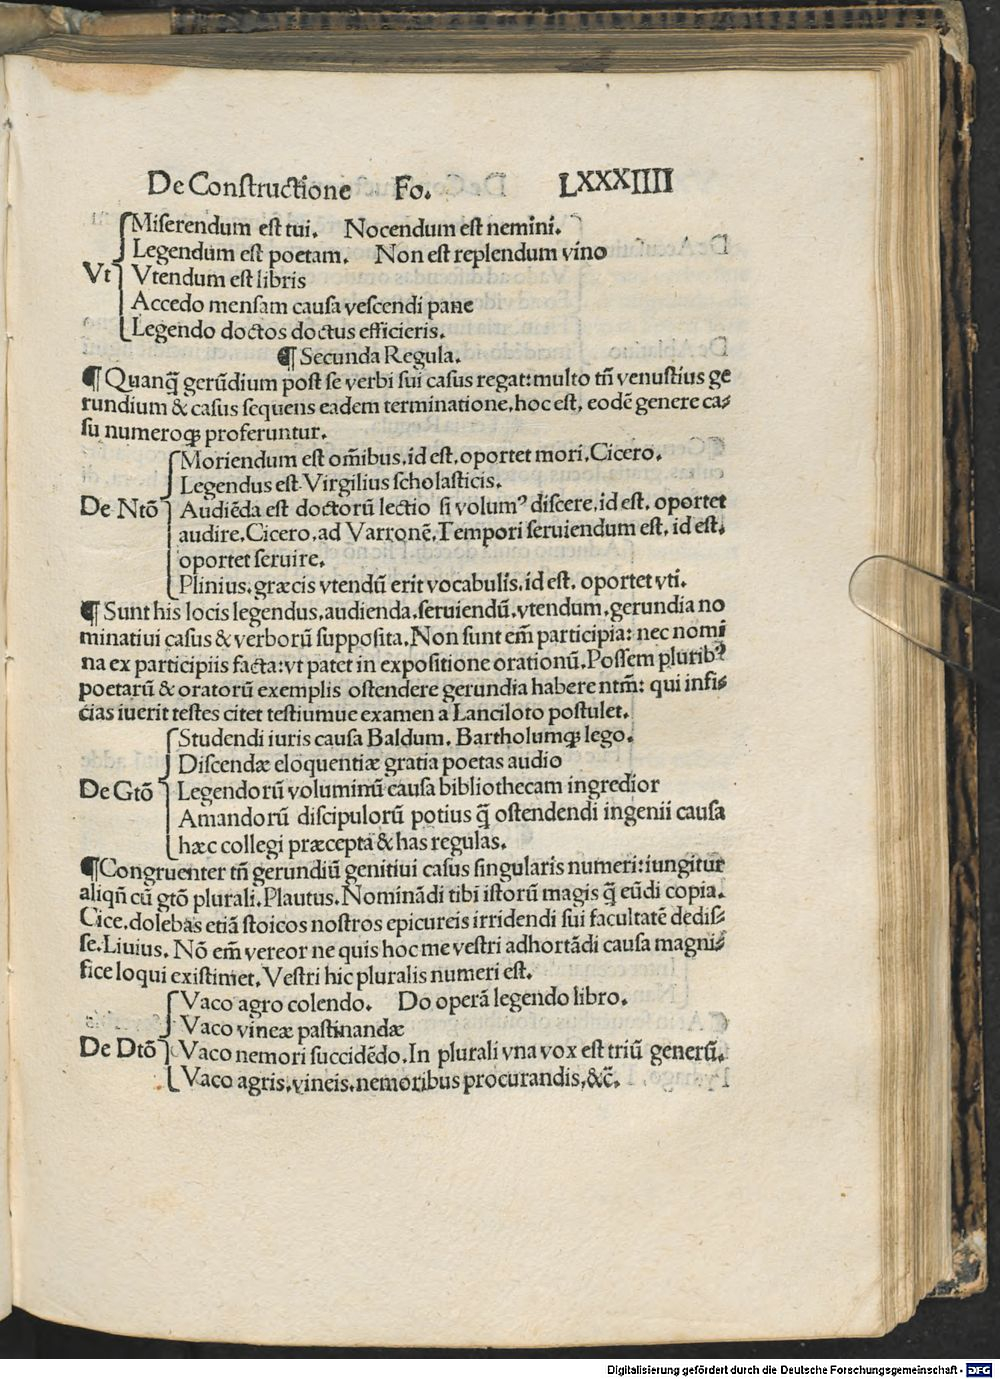 De Constructione Fo. LXXXIIII
Miserendum est tui. Nocendum est nemini.
Legendum est poetam. Non est replendum vino
Vt Vtendum est libris
Accedo mensam causa vescendi pane
Legendo doctos doctus efficieris.
¶ Secunda Regula.
¶ Quanq̃ gerũdium post se verbi sui casus regat: multo tñ venustius ge
rundium & casus sequens eadem terminatione, hoc est, eodẽ genere ca⸗
su numeroqꝫ proferuntur.
Moriendum est om̃ibus, id est, oportet mori, Cicero.
Legendus est Virgilius scholasticis.
De Ntõ Audiẽda est doctorũ lectio si volumꝰ discere, id est, oportet
audire. Cicero, ad Varronẽ, Tempori seruiendum est, id est,
oportet seruire.
Plinius, græcis vtendũ erit vocabulis, id est, oportet vti.
¶ Sunt his locis legendus, audienda, seruiendũ, vtendum, gerundia no
minatiui casus & verborũ supposita. Non sunt em̃ participia: nec nomi
na ex participiis facta: vt patet in expositione orationũ. Possem pluribꝰ
poetarũ & oratorũ exemplis ostendere gerundia habere ntm̃: qui infi⸗
cias iuerit testes citet testiumue examen a Lanciloto postulet.
Studendi iuris causa Baldum. Bartholumqꝫ lego.
Discendæ eloquentiæ gratia poetas audio
De Gtõ Legendorũ voluminũ causa bibliothecam ingredior
Amandorũ discipulorũ potius q̃ ostendendi ingenii causa
hæc collegi præcepta & has regulas.
¶ Congruenter tñ gerundiũ genitiui casus singularis numeri: iungitur
aliqñ cũ gtõ plurali. Plautus. Nominãdi tibi istorũ magis q̃ eũdi copia.
Cice. dolebas etiã stoicos nostros epicureis irridendi sui facultatẽ dedis⸗
se. Liuius. Nõ em̃ vereor ne quis hoc me vestri adhortãdi causa magni⸗
fice loqui existimet. Vestri hic pluralis numeri est.
Vaco agro colendo. Do operã legendo libro.
Vaco vineæ pastinandæ
De Dtõ Vaco nemori succidẽdo. In plurali vna vox est triũ generũ.
Vaco agris, vineis, nemoribus procurandis, &c̃.
Digitalisierung gefördert durch die Deutsche Forschungsgemeinschaft - DFG